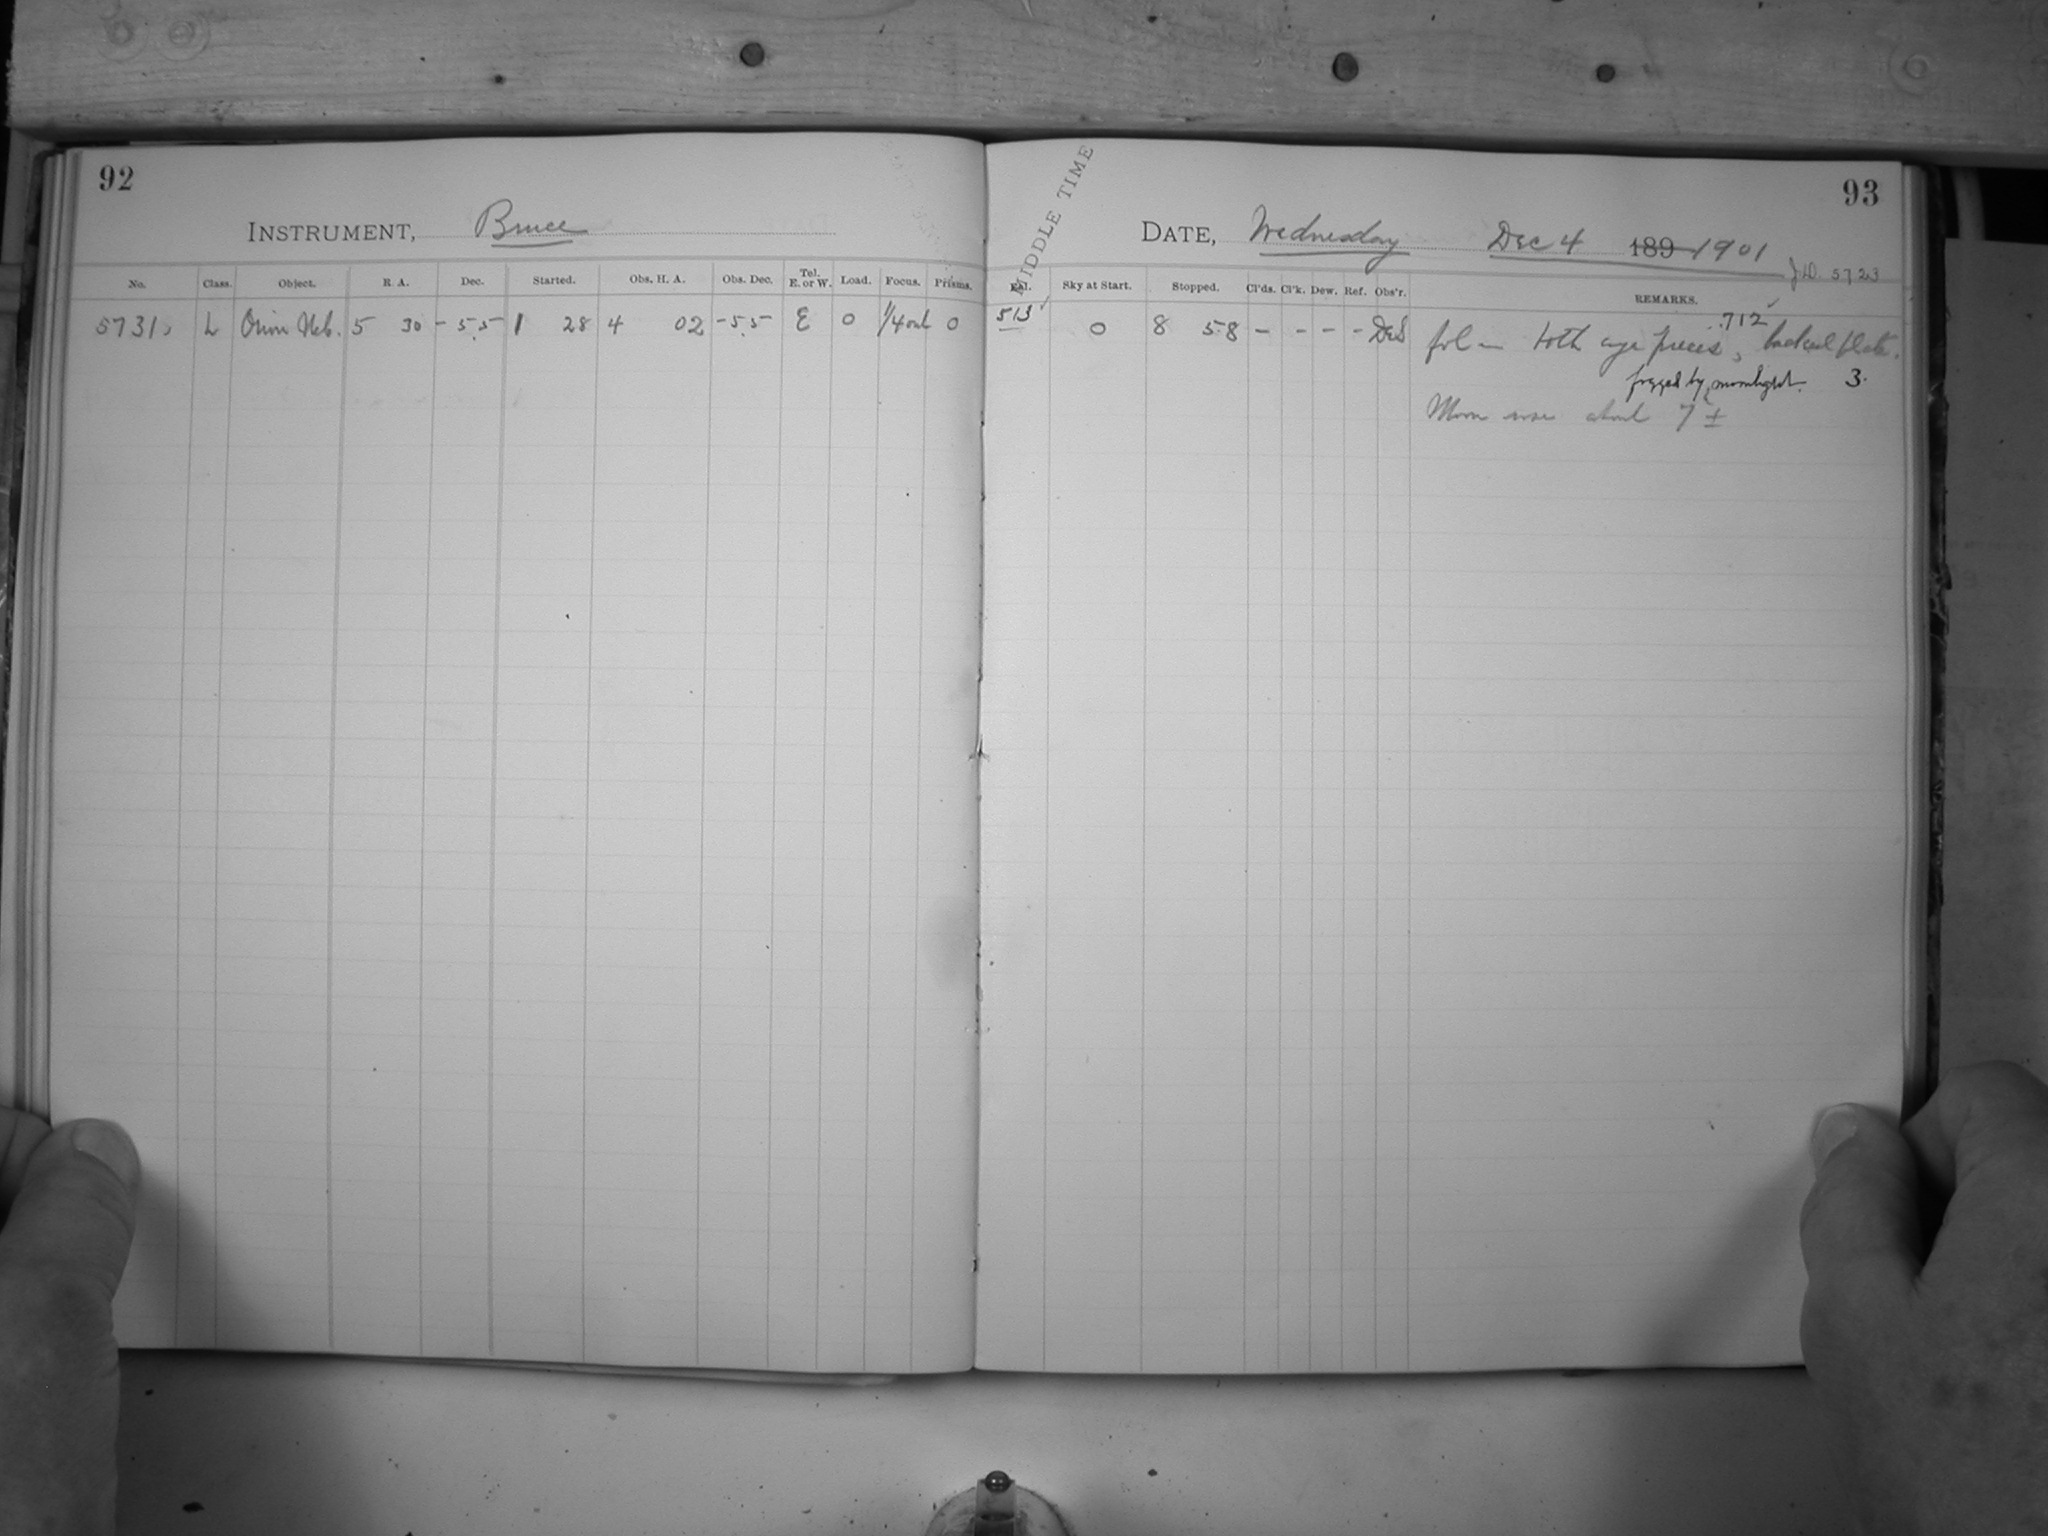 92
INSTRUMENT, Bruce
No. Class. Object. R. A. Dec. Started. Obs. H. A. Obs. Dec. Tel. E. or W. Load. Focus. Prisms.
5731 L Orion Neb. 5 30 -5.5 1 28 4 02 -5.5 E 0 1/4 out 0
93
MIDDLE TIME
DATE, Wednesday Dec 4 189 1901
J.D. 5723
Sky at Start. Stopped. Cl'ds. Cl'k. Dew. Ref. Obs'r. REMARKS.
513 0 8 58 - - - - DeS fol in both eye pieces, backed plate.
.712
fogged by moonlight. 3.
Moon rose about 7 ±